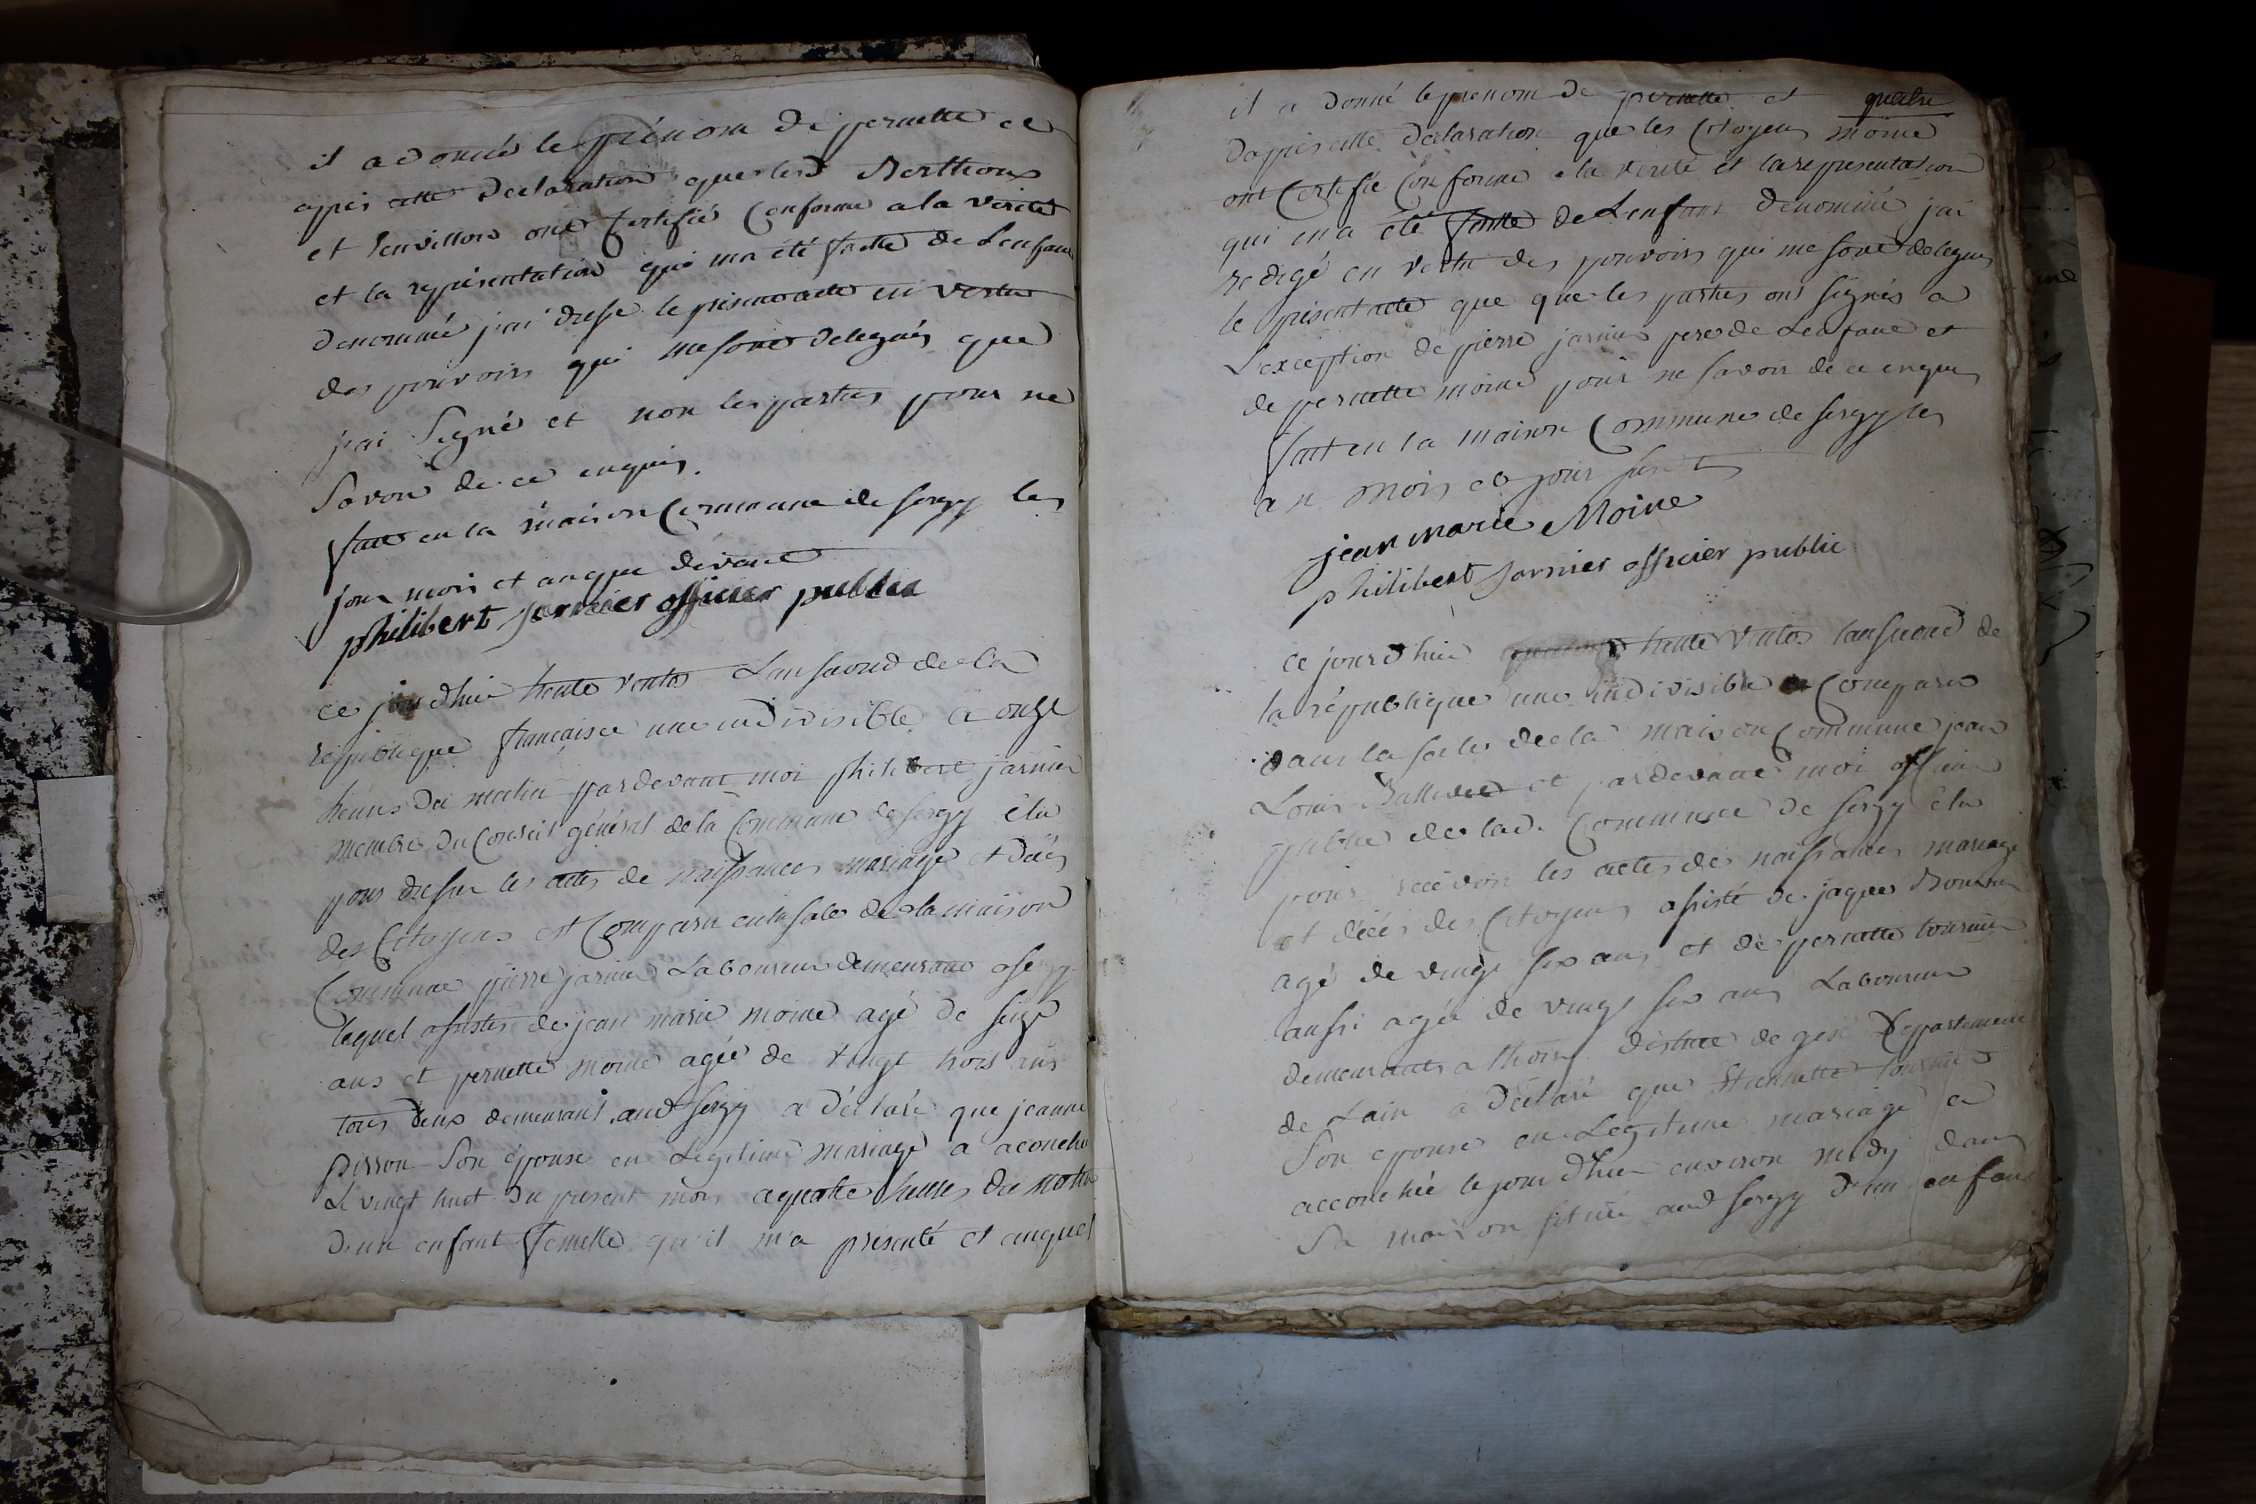 il a donné le prénom de pernette et
apres cette declaration que lesd Berthoux
et Venvillon ont Certifié Conforme a la verité
et la représentation qui ma été faitte de Lenfant
denommé jai dressé le present acte en vertu
des pouvoirs qui me sont delegués que
jai Signé et non les parties pour ne
Savoir de ce enquis.
fait en la maison Commune de sergy les
jour mois et an que devant
philibert jarnier officier public
ce jourdhui trente ventos Lan second de la
republique francaise une indivisible a onze
heures du matin pardevant moi philibert jarnier
membre du Conseil général de la Commune de sergy élu
pour dresser les actes de naissances mariage et décés
des Citoyens est Comparu en la sale de la maison
Commune pierre jarnier Laboureur demeurant a sergy
lequel assistés de jean marie moine agé de seize
ans et pernette moine agée de vingt trois ans
tous deux demeurant aud sergy a déclaré que jeanne
pisson Son épouse en Legitime mariage a acouchée
Le vingt huit du present mois a quatre heures du matin
d'un enfant femelle qu'il m'a présenté et auquel
il a donné le prenom de pernette et quatre
d'après cette declaration que les Citoyens moine
ont Certifié Conforme a la verité et la representation
qui m'a été faitte de Lenfant denommé jai
redigé en vertu des pouvoirs qui me sont delegués
le présent acte que que les parties ont signés a
L'exception de pierre jarnier pere de Lenfant et
de pernette moine pour ne savoir de ce enquis
fait en la maison Commune de sergy les
an mois et jour susdit
jean marie Moine
philibert jarnier officier public
ce jourdhui trente ventos lan second de
la république une indivisible Comparu
dans la sale de la maison Commune jean
Louis et pardevant moi officier
public de lad. Commune de sergy élu
pour recevoir les actes de naissances mariage
et décés des Citoyens assisté de jaques
agé de vingt six ans et de pernette tournier
aussi agée de vingt six ans Laboureur
demeurants a thoiry district de gex Departement
de Lain a déclaré que Etiennette tournier
Son epouse en Legitime mariage a
accouchée le jourdhui environ midy dans
Sa maison située aud sergy d'un enfant